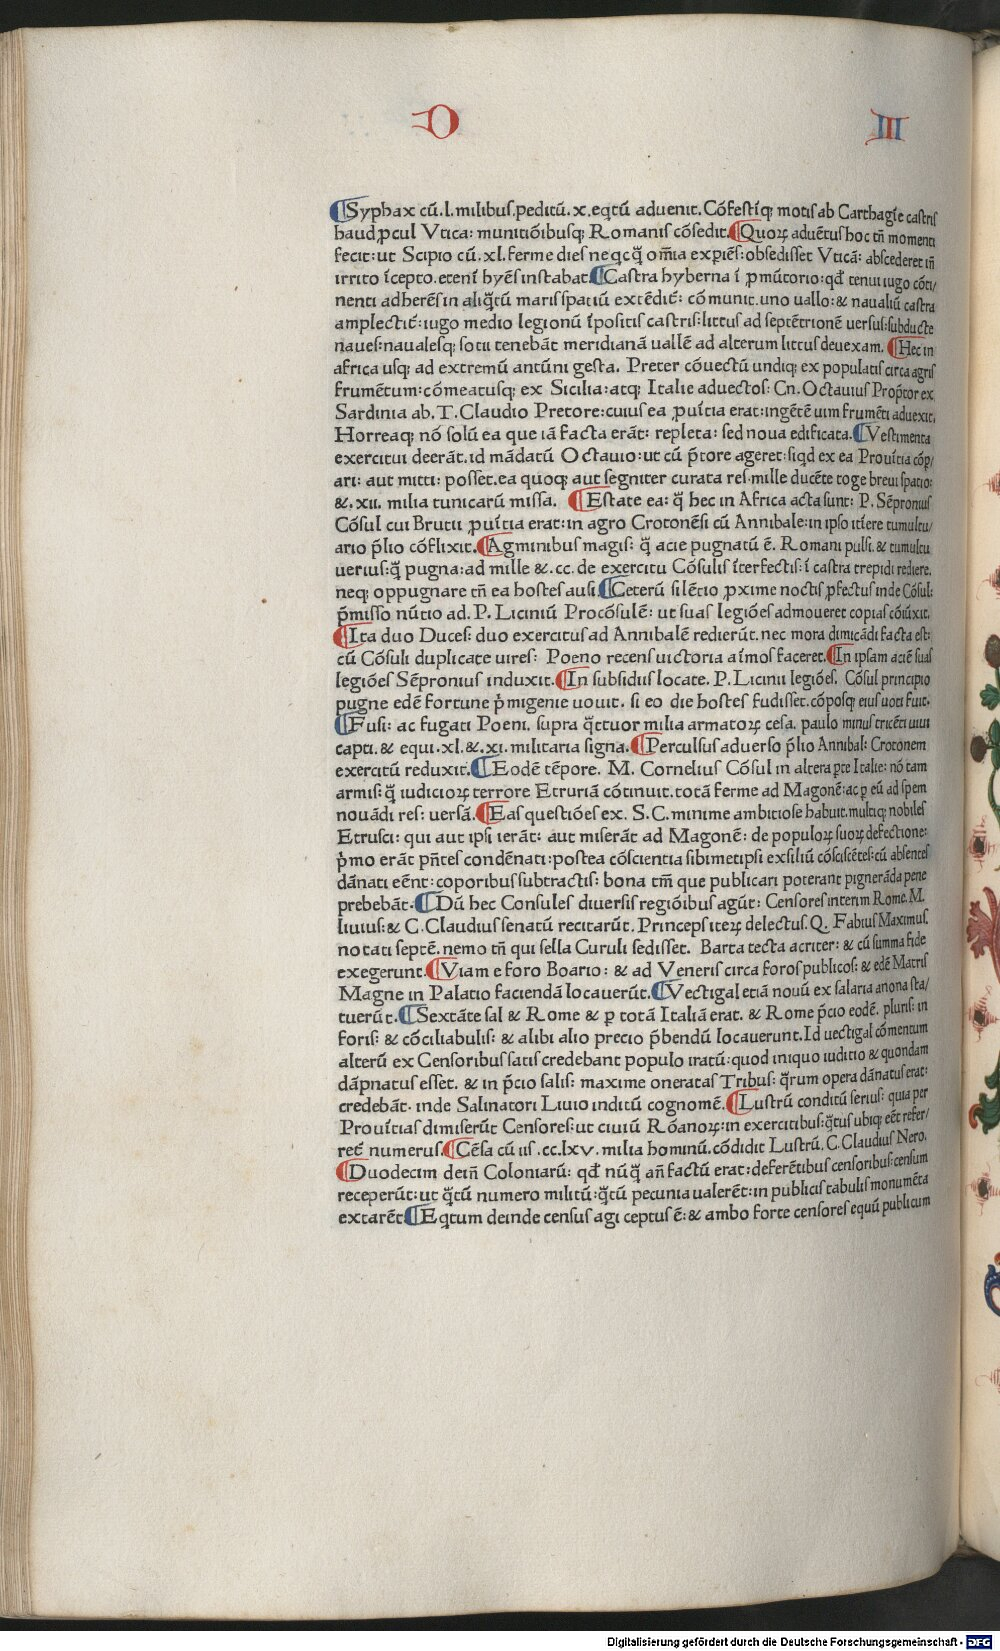 D
III
¶Syphax cū.l.milibus.peditū.x.eqtū aduenit. Cōfestīq; motis ab Carthagīe castris
haud ꝓcul Vtica: munitiōibusq; Romanis cōsedit.¶Quoꝝ aduētus hoc tn̄ momenti
fecit: ut Scipio cū.xl.ferme dies neqcq̄ om̄ia expiēs: obsedisset Vticā: abscederet iñ
irrito īcepto.etenī hyēs instabat¶Castra hyberna ī ꝓmūtorio: qd̄ tenui iugo cōti/
nenti adherēs in aliq̄tū maris spatiū extēdit̄: cōmunit.uno uallo: & naualiū castra
amplectit̄: iugo medio legionū īpositis castris: littus ad septētrionē uersus: subducte
naues: nauales q; sotii tenebāt meridianā uallē ad alterum littus deuexam. ¶Hec in
africa usq; ad extremū antūni gesta. Preter cōuectū undiq; ex populatis circa agris
frumētum: cōmeatusq; ex Sicilia: atq; Italie aduectos: Cn. Octauius Prop̄tor ex
Sardinia ab. T. Claudio Pretore: cuius ea ꝓuītia erat: ingētē uim frumēti aduexit.
Horreaq; nō solū ea que iā facta erāt: repleta: sed noua edificata.¶Vestimenta
exercitui deerāt.id mādatū Octauio: ut cū p̄tore ageret: siqd ex ea Prouītia cōp/
ari: aut mitti: posset.ea quoq; aut segniter curata res.mille ducēte toge breui spatio:
&.xii. milia tunicarū missa. ¶Estate ea: q̄ hec in Africa acta sunt: P. Sēpronius
Cōsul cui Brutii ꝓuītia erat: in agro Crotonēsi cū Annibale: in ipso itīere tumultu/
ario p̄lio cōflixit.¶Agminibus magis: q̄ acie pugnatū ē. Romani pulsi.& tumultu
uerius: q̄ pugna: ad mille &.cc. de exercitu Cōsulis īterfectis: ī castra trepidi rediere.
neq; oppugnare tn̄ ea hostes ausi.¶Ceterū silētio ꝓxime noctis ꝓfectus inde Cōsul:
p̄misso nūtio ad. P. Liciniū Procōsulē: ut suas legiōes admoueret copias cōiūxit.
¶Ita duo Duces: duo exercitus ad Annibalē redierūt. nec mora dimicādi facta est:
cū Cōsuli duplicate uires: Poeno recens uictoria aīmos faceret.¶In ipsam aciē suas
legiōes Sēpronius induxit.¶In subsidiis locate. P. Licinii legiōes. Cōsul principio
pugne edē fortune p̄migenie uouit. si eo die hostes fudisset.cōposq; eius uoti fuit.
¶Fusi: ac fugati Poeni. supra q̄ttuor milia armatoꝝ cesa. paulo minus tricēti uiui
capti. & equi.xl.&.xi.militaria signa.¶Perculsus aduerso p̄lio Annibal: Crotonem
exercitū reduxit.¶Eodē tēpore. M. Cornelius Cōsul in altera ꝑte Italie: nō tam
armis: q̄ iudicioꝝ terrore Etruriā cōtinuit. totā ferme ad Magonē: ac ꝑ eū ad spem
nouādi res: uersā.¶Eas questiōes ex. S.C. minime ambitiose habuit. multiq; nobiles
Etrusci: qui aut ipsi ierāt: aut miserāt ad Magonē: de populoꝝ suoꝝ defectione:
p̄mo erāt pn̄tes condēnati: postea cōscientia sibimetipsi exsiliū cōsciscētes: cū absentes
dānati eēnt: coporibus subtractis: bona tm̄ que publicari poterant pignerāda pene
prebebāt.¶Dū hec Consules diuersis regiōibus agūt: Censores interim Rome. M.
liuius: & C. Claudius senatū recitarūt. Princeps iteꝝ delectus. Q. Fabius Maximus.
notati septē. nemo tn̄ qui sella Curuli sedisset. Barta tecta acriter: & cū summa fide
exegerunt.¶Viam e foro Boario: & ad Veneris circa foros publicos: & edē Matris
Magne in Palatio faciendā locauerūt.¶Vectigal etiā nouū ex salaria anona sta/
tuerūt.¶Sextāte sal & Rome & ꝑ totā Italiā erat. & Rome p̄cio eodē. pluris: in
foris: & cōciliabulis: & alibi alio precio p̄bendū locauerunt. Id uectigal cōmentum
alterū ex Censoribus satis credebant populo iratū: quod iniquo iuditio & quondam
dāpnatus esset. & in p̄cio salis: maxime oneratas Tribus: q̄rum opera dānatus erat:
credebāt. inde Salinatori Liuio inditū cognomē.¶Lustrū conditū serius: quia per
Prouītias dimiserūt Censores: ut ciuiū Rōanoꝝ: in exercitibus: q̄tus ubiq; eēt refer/
ret̄ numerus.¶Cēsa cū iis.cc.lxv. milia hominū. cōdidit Lustrū. C. Claudius Nero.
¶Duodecim dein̄ Coloniarū: qd̄ nūq̄ an̄ factū erat: deferētibus censoribus: censum
receperūt: ut q̄tū numero militū: q̄tū pecunia ualerēt: in publicis tabulis monumēta
extarēt¶Eqtum deinde census agi ceptus ē: & ambo forte censores equū publicum
Digitalisierung gefördert durch die Deutsche Forschungsgemeinschaft - DFG